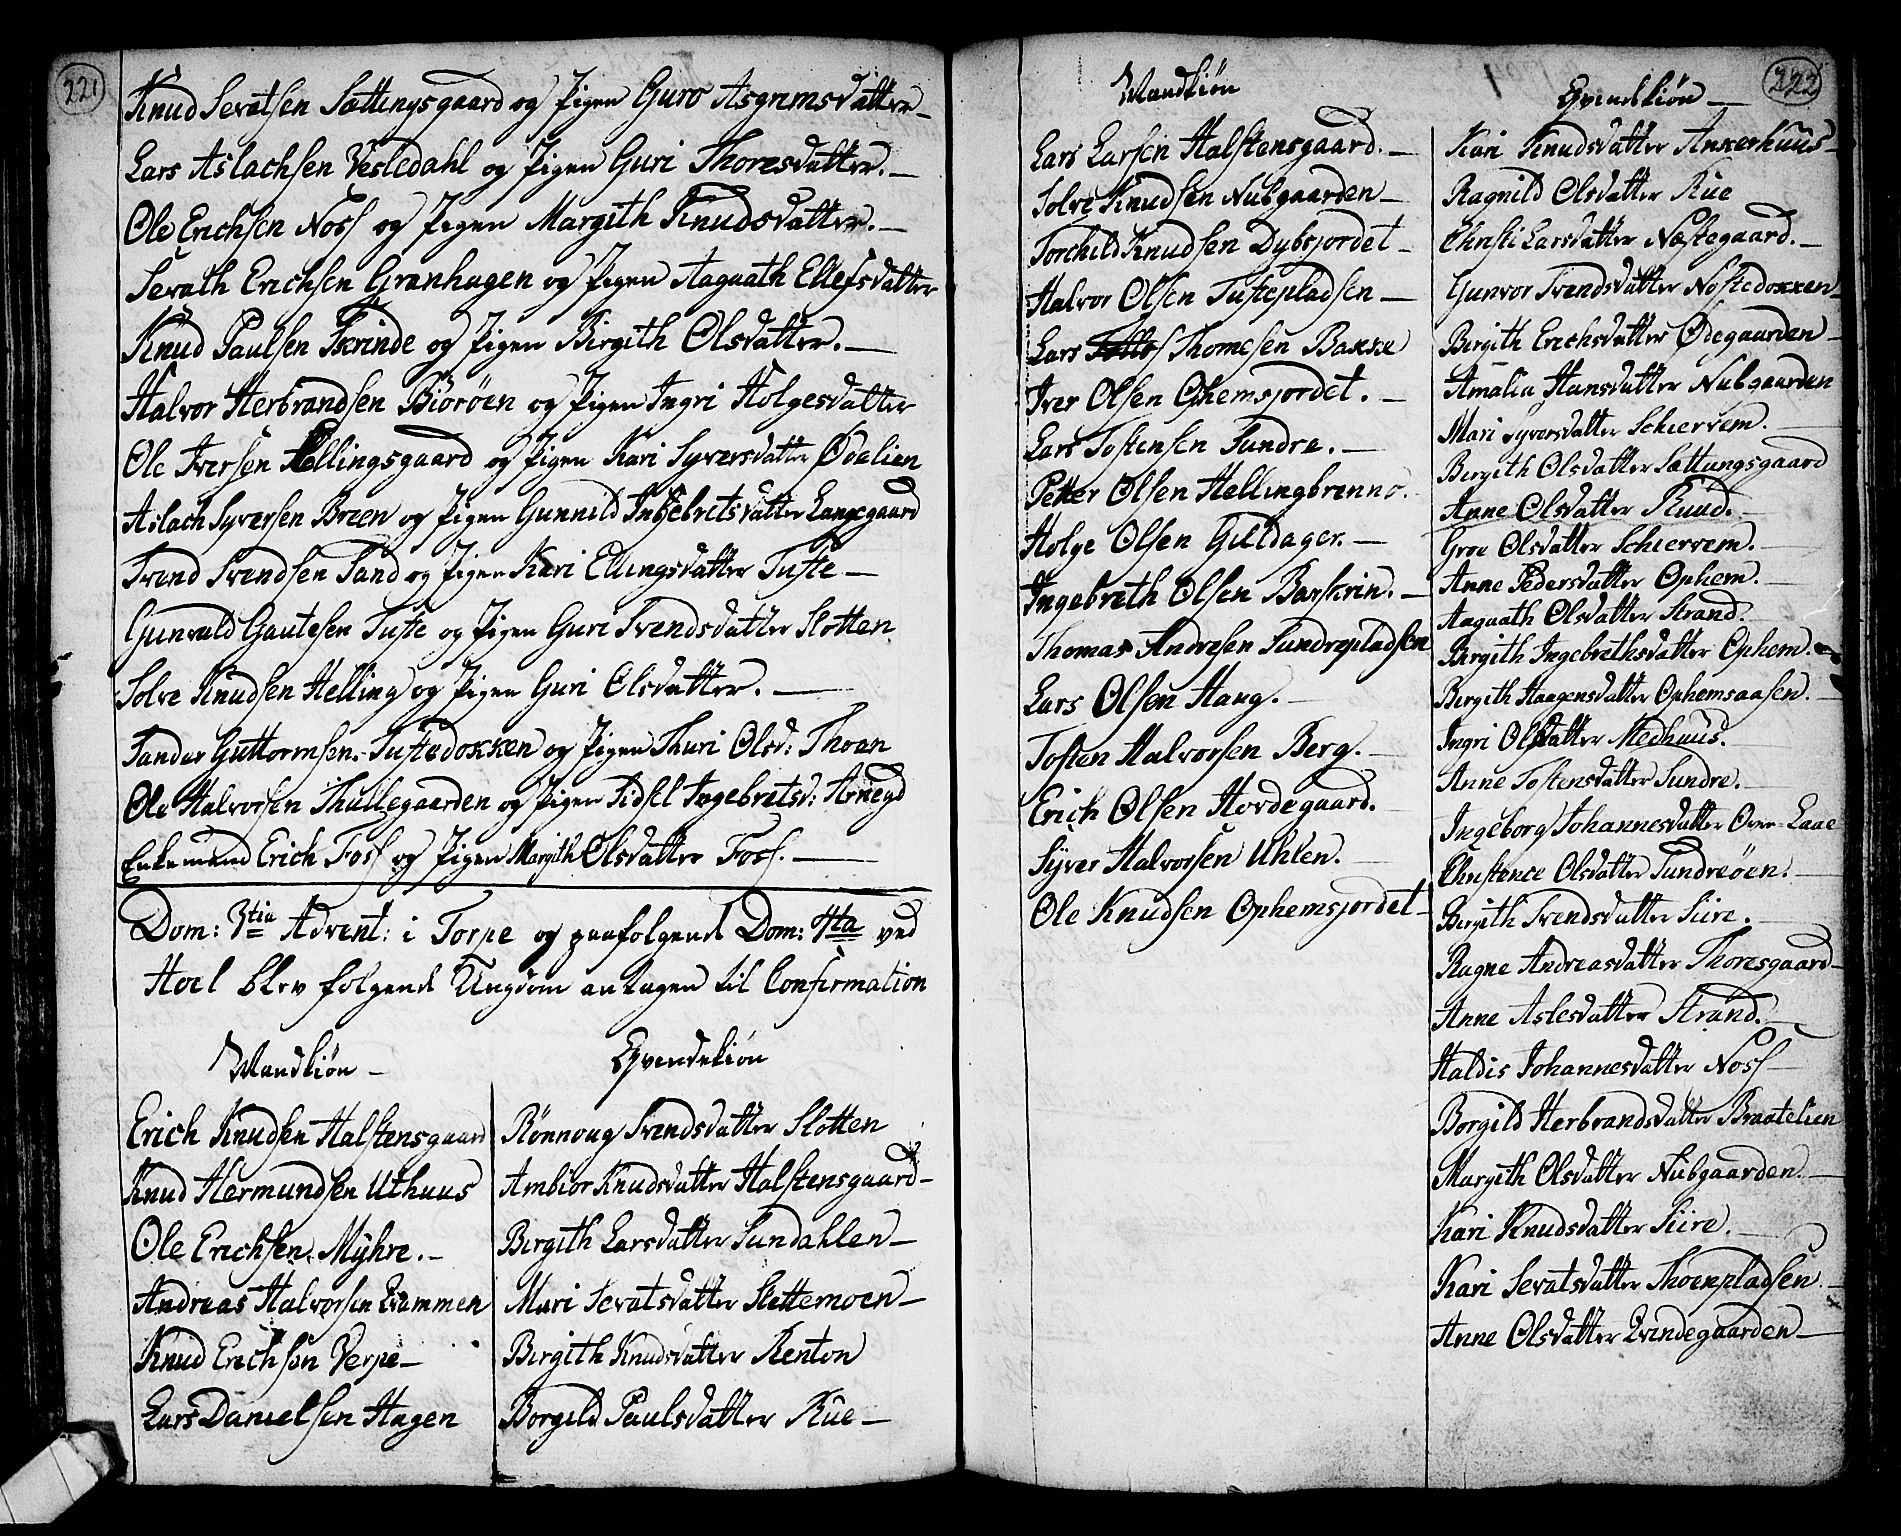 221
Knud Sevatsen Sættingsgaard og Pigen Guro Asgrimsdatter
Lars Aslachsen Vesledahl og Pigen Guri Thoresdatter.
Ole Erichsen Noss og Pigen Margith Knudsdatter.
Sevath Erichsen Granhagen og Pigen Aagaath Ellefsdatter
Knud Paulsen Tscrinde og Pigen Birgith Olsdatter.
Halvor Herbrandsen Biöröen og Pigen Ingri Holgesdatter
Ole Iversen Hellingsgaard og Pigen Kari Syversdatter Ödelien
Aslach Syversen Breen og Pigen Gunnild Ingebretsdatter Langegaard
Svend Svendsen Sand og Pigen Kari Ellingsdatter Tufte
Gunvald Gautesen Tufte og Pigen Guri Svendsdatter Slotten
Solve Knudsen Helling og Pigen Guri Olsdatter.
Sander Guttormsen Tuftedokken og Pigen Thuri Olsd: Thoen
Ole Halvorsen Thullegaarden og Pigen Sidsel Ingebretsd: Arnegd
Enkemand Erich Foss og Pigen Margith Olsdatter Foss.
Dom: 3tia Advent: i Torpe og paafolgende Dom: 4ta ved
Hoel blev folgende Ungdom antagen til Confirmation
Mandkiön
Erich Knudsen Halstensgaard
Knud Hermundsen Uthuus
Ole Erichsen Myhre.
Andreas Halvorsen Qvammen
Knud Erichsen Verpe
Lars Danielsen Hagen
Qvindekiön
Rönnoug Svendsdatter Slotten
Ambior Knudsdatter Halstensgaard
Birgith Larsdatter Sundahlen
Mari Sevatsdatter Slettemoen
Birgith Knudsdatter Renton
Borgild Paulsdatter Rue
222
Mandkiön
Lars Larsen Halstensgaard.
Solve Knudsen Nubgaarden
Torchild Knudsen Dybsjordet
Halvor Olsen Tuftepladsen
Lars Thomesen Bakke
Iver Olsen Ophemsjordet.
Lars Tostensen Sundre.
Petter Olsen Hellingbrenno.
Holge Olsen Guldager.
Ingebreth Olsen Barskrin.
Thomas Andresen Sundrepladsen
Lars Olsen Haug.
Tosten Halvorsen Berg.
Erich Olsen Hovdegaard.
Syver Halvorsen Uhlen.
Ole Knudsen Ophemsjordet
Qvindekiön
Kari Knudsdatter Ankerhuus
Ragnild Olsdatter Rue
Christi Larsdatter Næstegaard.
Gunvor Svendsdatter Nostedokken
Birgith Erichsdatter Ödegaarden
Amalia Hansdatter Nubgaarden
Mari Syversdatter Schiervem.
Birgith Olsdatter Sættungsgaard
Anne Olsdatter Ruud.
Groe Olsdatter Schiervem.
Anne Pedersdatter Ophem.
Aagaath Olsdatter Strand.
Birgith Ingebrethsdatter Ophem.
Birgith Haagensdatter Ophemsaasen.
Ingri Olsdatter Medhuus.
Anne Tostensdatter Sundre.
Ingeborg Johannesdatter Over-Laae
Christence Olsdatter Sundreöen.
Birgith Svendsdatter Siire.
Ragne Andreasdatter Thoresgaard
Anne Aslesdatter Strand.
Haldis Johannesdatter Noss
Borgild Herbrandsdatter Braatelien
Margith Olsdatter Nubgaarden.
Kari Knudsdatter Siire.
Kari Sevatsdatter Thoenpladsen
Anne Olsdatter Qvindegaarden